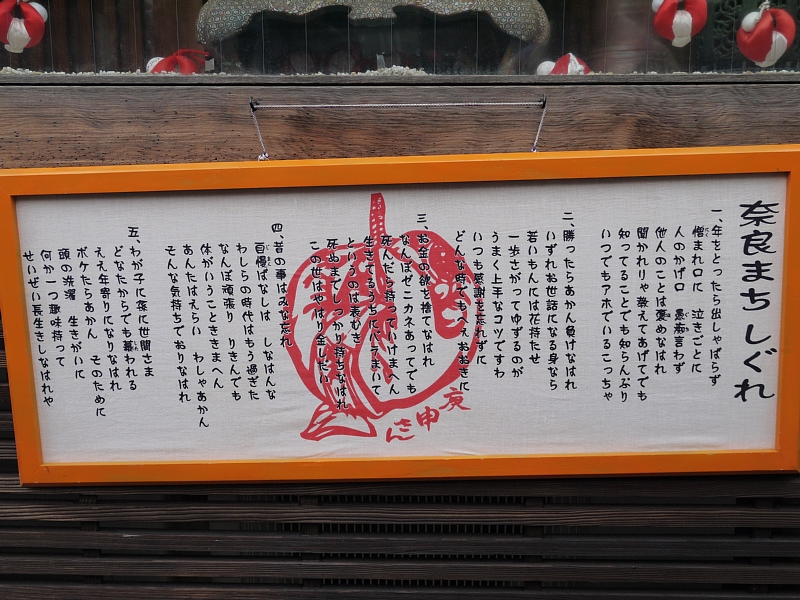 奈良まちしぐれ
一、年をとったら出しゃばらず
憎まれ口に 泣きごとに
人のかげ口 愚痴言わず
他人のことは褒めなはれ
聞かれりゃ教えてあげてでも
知ってることでも知らんぷり
いつでもアホでいるこっちゃ
二、勝ったらあかん負けなはれ
いずれお世話になる身なら
若いもんには花持たせ
一歩さがってゆずるのが
うまく上手なコツですわ
いつも感謝を忘れずに
どんな時でもへえおおきに
三、お金の欲を捨てなはれ
なんぼゼニカネあってでも
死んだら持っていけまへん
生きてるうちにバラまいて
というのは表むき
死ぬまでしっかり持ちなはれ
この世はやはり金しだい
四、昔の事はみな忘れ
自慢ばなしは しなはんな
わしらの時代はもう過ぎた
なんぼ頑張り りきんでも
体がいうこときまへん
あんたはえらい わしゃあかん
そんな気持ちでおりなはれ
五、わが子に孫に世間さま
どなたからでも慕われる
ええ年寄りになりなはれ
ボケたらあかん そのために
頭の洗濯 生きがいに
何か一つ趣味持って
せいぜい長生きしなはれや
庚申さん